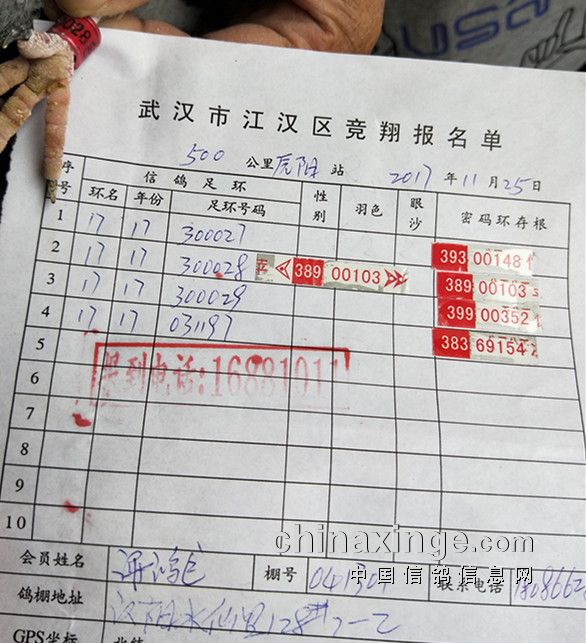 usa
武汉市江汉区竞翔报名单
500 公里 辰阳 站 2017 年 11 月 25 日
序号 信鸽足环 性别 羽色 眼沙 密码环存根
环名 年份 足环号码
1 17 17 300027 393 00148
2 17 17 300028 389 00103 389 00103
3 17 17 300029 399 00352
4 17 17 031197 383 69154
5
报到电话:16881011
6
7
8
9
10
chinaxinge.com
中国信鸽信息网
会员姓名 棚号 041304 联系电话
鸽棚地址 汉阳水仙里128
GPS坐标 北纬